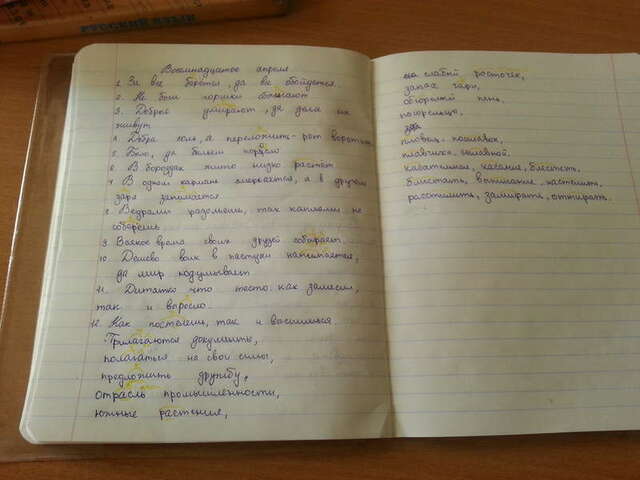 РУССКИЙ ЯЗЫК
Восемнадцатое апреля
1. За все берётся, да не
2. Не боги горшки обжигают
3. Доброе умирают, да дела их
живут
4. Добра соль, а переложишь - рот воротит
5. Бело, да больем
6. В бороздах жито низко растет
7. В одном кармане смеркается, а в другом
заря занимается.
8. Ведрами разольешь, так каплями не
соберёшь
9. Всякое время своих друзей собирает.
10. Дешево волк в пастухи нанимается,
да мир подумывает
11. Дитятко что тесто: как замесил,
так и выросло.
12. Как постелешь, так и выспишься.
Прилагаются документы,
полагаться на свои силы,
предложить дружбу,
отрасль промышленности,
южные растения,
слабый росточек,
запах гари,
обгорелый пень,
погорельцы,
пловец, поплавок,
плавчиха, наплавной.
касательная, касание, блестеть
блистать, вытирание, застелить,
расстилить, замирать, отпирать.